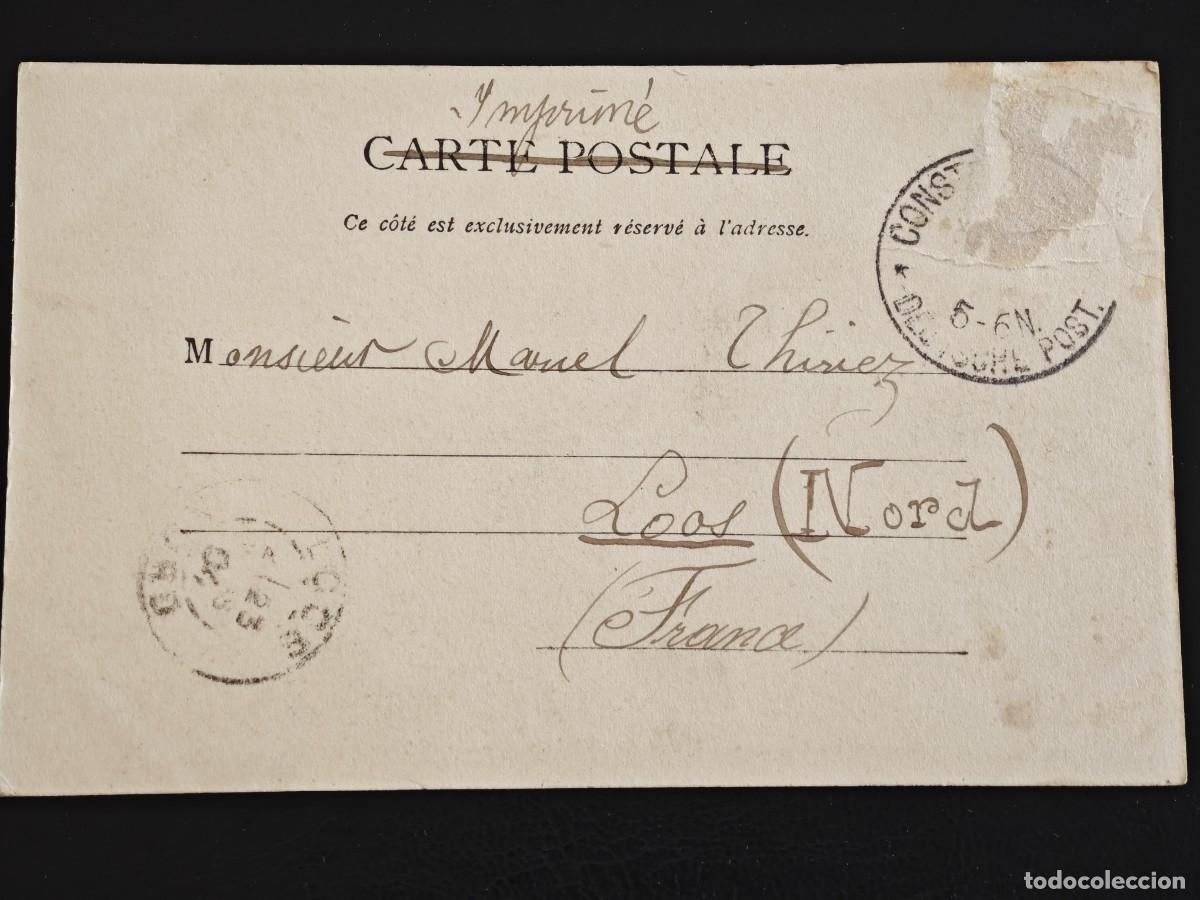 Imprimé
CARTE POSTALE
Ce côté est exclusivement réservé à l'adresse.
Monsieur Marcel Thiriez
Loos (Nord)
(France)
CONST
5-6N.
* DEUTSCHE POST.
23
todocoleccion